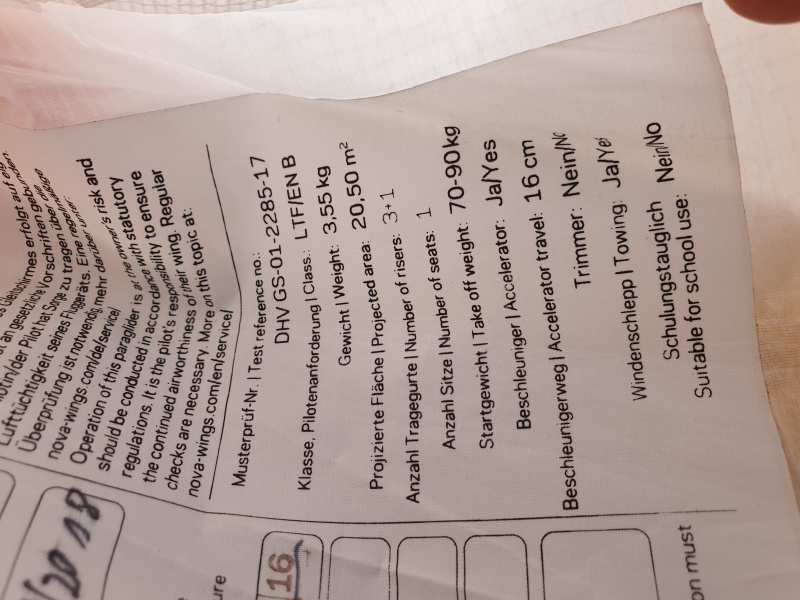 Überprüfung ist notwendig, mehr darüber unter:
nova-wings.com/de/service/
Operation of this paraglider is at the owner's risk and
should be conducted in accordance with statutory
regulations. It is the pilot's responsibility to ensure
the continued airworthiness of their wing. Regular
checks are necessary. More on this topic at:
nova-wings.com/en/service/
Musterprüf-Nr. | Test reference no.:
DHV GS-01-2285-17
Klasse, Pilotenanforderung | Class.: LTF/EN B
Gewicht | Weight: 3,55 kg
Projizierte Fläche | Projected area: 20,50 m²
Anzahl Tragegurte | Number of risers: 3+1
Anzahl Sitze | Number of seats: 1
Startgewicht | Take off weight: 70-90 kg
Beschleuniger | Accelerator: Ja/Yes
Beschleunigerweg | Accelerator travel: 16 cm
Trimmer: Nein/No
Windenschlepp | Towing: Ja/Yes
Schulungstauglich
Suitable for school use: Nein/No
2018
16
on must